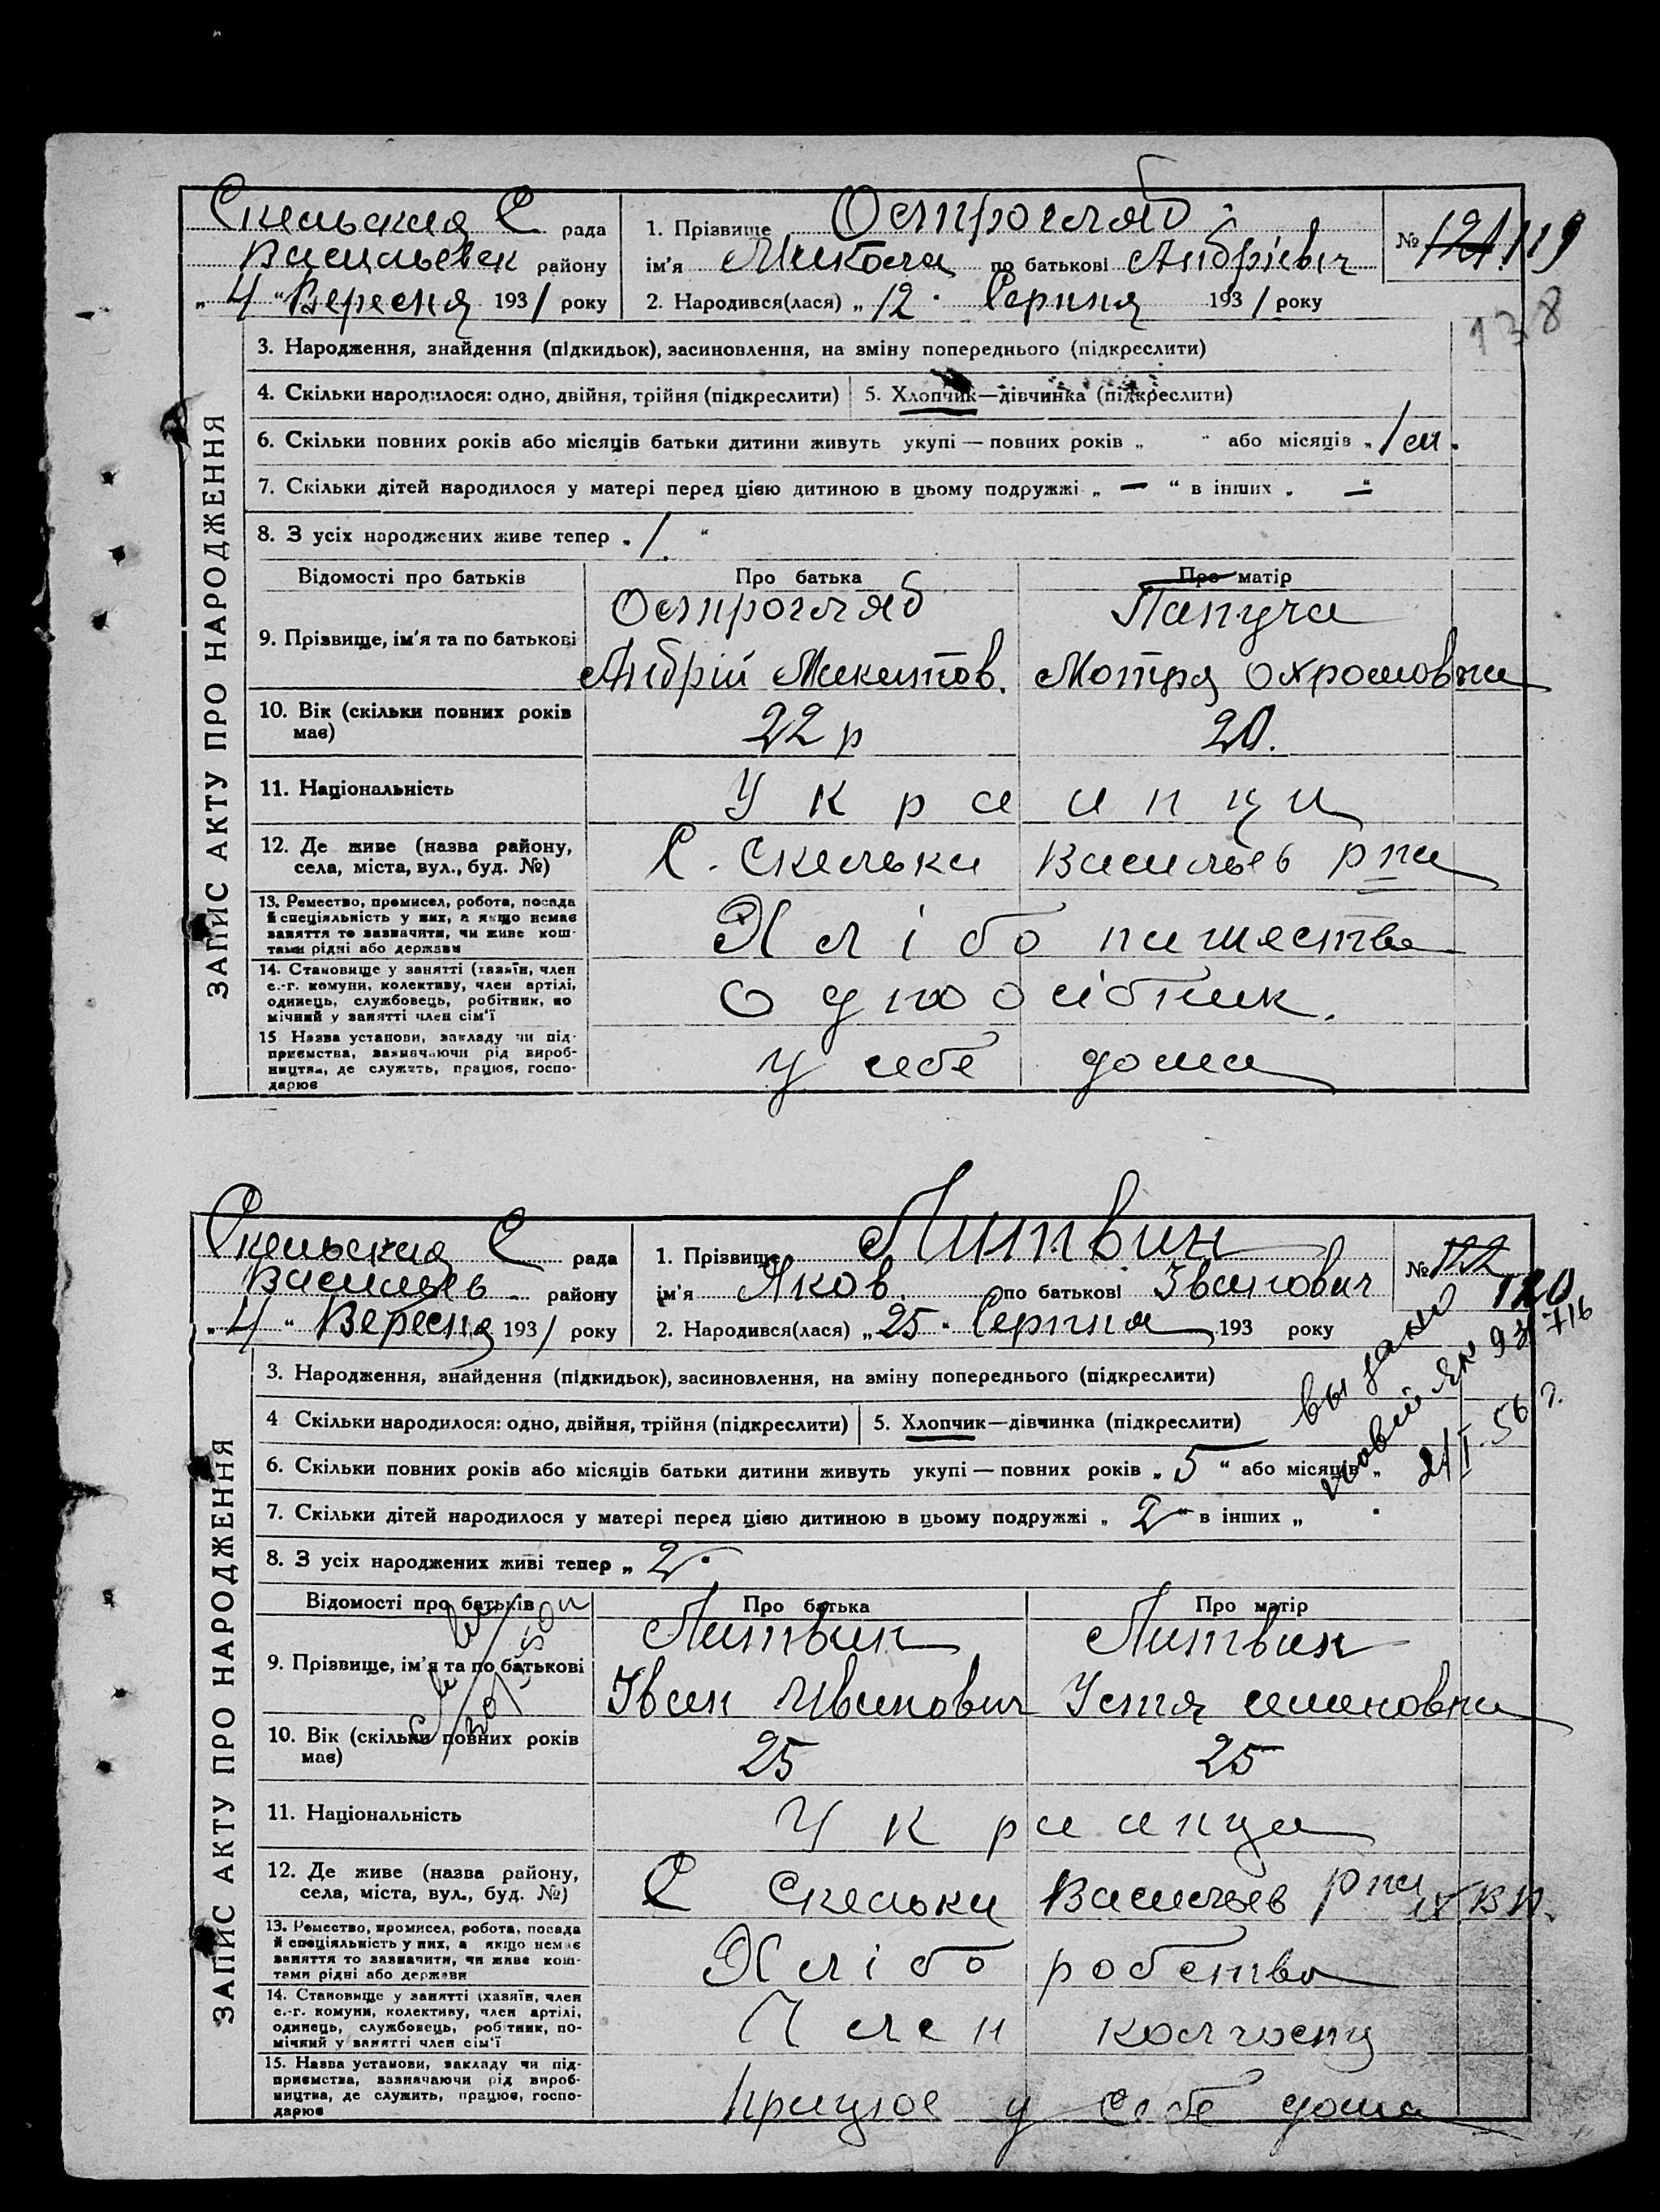 Скельская С рада
Васильевск району
„ 4 “ Вересня 1931 року
1. Прізвище Острогляд
ім'я Микола по батькові Андріевич
2. Народився(лася) „ 12 “ Серпня 1931 року
№ 121. 119
138
ЗАПИС АКТУ ПРО НАРОДЖЕННЯ
3. Народження, знайдення (підкидьок), засиновлення, на зміну попереднього (підкреслити)
4. Скільки народилося: одно, двійня, трійня (підкреслити) 5. Хлопчик—дівчинка (підкреслити)
6. Скільки повних років або місяців батьки дитини живуть укупі — повних років „ “ або місяців „ 1 м.
7. Скільки дітей народилося у матері перед цією дитиною в цьому подружжі „ — “ в інших „ — “
8. З усіх народжених живе тепер „ 1. “
Відомості про батьків Про батька Про матір
9. Прізвище, ім'я та по батькові
Острогляд
Андрій Микитов.
Папуча
Мотря Охромовна
10. Вік (скільки повних років має) 22 р 20.
11. Національність Украинци
12. Де живе (назва району, села, міста, вул., буд. №) С. Скельки Васильев рна
13. Ремество, промисел, робота, посада
й спеціяльність у них, а якщо немає
заняття то зазначити, чи живе кош-
тами рідні або держави
Хлібопашество
14. Становище у занятті (хазяїн, член
с.-г. комуни, колективу, член артілі,
одинець, службовець, робітник, по
мічний у занятті член сім'ї
Одноосібник.
15 Назва установи, закладу чи під-
приємства, зазначаючи рід вироб-
ництва, де служить, працює, госпо-
дарює
у себе дома
Скельская С рада
Васильев району
„ 4 “ Вересня 1931 року
1. Прізвище Литвин
ім'я Яков. по батькові Іванович
2. Народився(лася) „ 25 “ Серпня 193 року
№ 122 120
ЗАПИС АКТУ ПРО НАРОДЖЕННЯ
3. Народження, знайдення (підкидьок), засиновлення, на зміну попереднього (підкреслити)
4 Скільки народилося: одно, двійня, трійня (підкреслити) 5. Хлопчик—дівчинка (підкреслити)
6. Скільки повних років або місяців батьки дитини живуть укупі — повних років „ 5 “ або місяців „
7. Скільки дітей народилося у матері перед цією дитиною в цьому подружжі „ 2 “ в інших „ “
8. З усіх народжених живі тепер „ 2 “
Відомості про батьків Про батька Про матір
9. Прізвище, ім'я та по батькові
Литвин
Іван Иванович
Литвин
Устя семеновна
10. Вік (скільки повних років має) 25 25
11. Національність Украинци
12. Де живе (назва району, села, міста, вул., буд. №) С Скельки Васильев рна
13. Ремество, промисел, робота, посада
й спеціяльність у них, а якщо немає
заняття то зазначити, чи живе кош-
тами рідні або держави
Хліборобство
14. Становище у занятті (хазяїн, член
с.-г. комуни, колективу, член артілі,
одинець, службовець, робітник, по-
мічний у занятті член сім'ї
Член колгоспу
15. Назва установи, закладу чи під-
приємства, зазначаючи рід вироб-
ництва, де служить, працює, госпо-
дарює
працює у себе дома